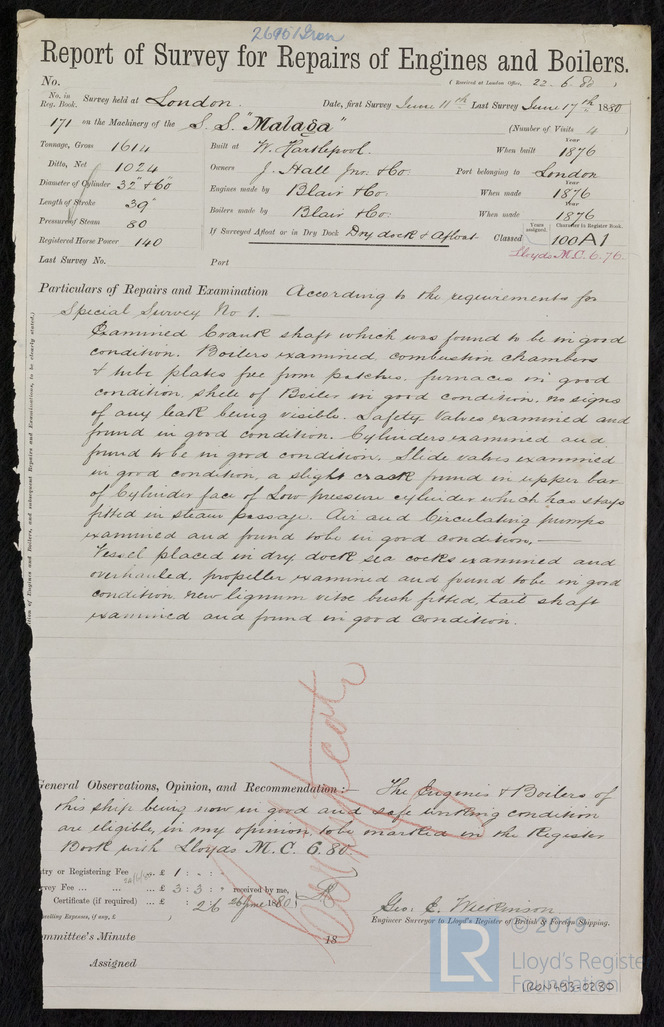 2690 Iron
Report of Survey for Repairs of Engines and Boilers.
No. (Received at London Office, 22.6.80)
No. in Reg. Book. Survey held at London. Date, first Survey June 11th Last Survey June 17th 1880
171 on the Machinery of the S.S. "Malaga" (Number of Visits 4)
Tonnage, Gross 1614 Built at W. Hartlepool. When built Year 1876
Ditto, Net 1024 Owners J. Hall Jnr. & Co. Port belonging to London
Diameter of Cylinder 32" & 60" Engines made by Blair & Co. When made Year 1876
Length of Stroke 39" Boilers made by Blair & Co. When made Year 1876
Pressure of Steam 80
Registered Horse Power 140 If Surveyed Afloat or in Dry Dock Dry dock & Afloat Classed Years assigned. Character in Register Book. 100A1
Lloyds M.C. 6.76
Last Survey No. Port
Particulars of Repairs and Examination According to the requirements for
Special Survey No 1. —
Examined Crank shaft which was found to be in good
condition. Boilers examined, combustion chambers
& tube plates free from patches, furnaces in good
condition, shell of Boiler in good condition, no signs
of any leak being visible. Safety Valves examined and
found in good condition. Cylinders examined and
found to be in good condition. Slide valves examined
in good condition, a slight crack found in upper bar
of Cylinder face of Low pressure cylinder which has stays
fitted in steam passage. Air and Circulating pumps
examined and found to be in good condition. —
Vessel placed in dry dock sea cocks examined and
overhauled, propeller examined and found to be in good
condition. new lignum vitae bush fitted, tail shaft
examined and found in good condition.
tion of Engines and Boilers, and subsequent Repairs and Examinations, to be clearly stated.)
General Observations, Opinion, and Recommendation:— The Engines & Boilers of
this ship being now in good and safe working condition
are eligible, in my opinion, to be marked in the Register
Book with Lloyds M.C. 6.80
try or Registering Fee £ 1 : - :
vey Fee ... ... £ 3 : 3 : received by me,
Certificate (if required) ... £ : 26 June 1880
velling Expenses, if any, £
Geo. E. Wilkinson
Engineer Surveyor to Lloyd's Register of British & Foreign Shipping.
ommittee's Minute 18
Assigned
© 2019
LR
Lloyd's Registe
Foundation
IRON493-0230